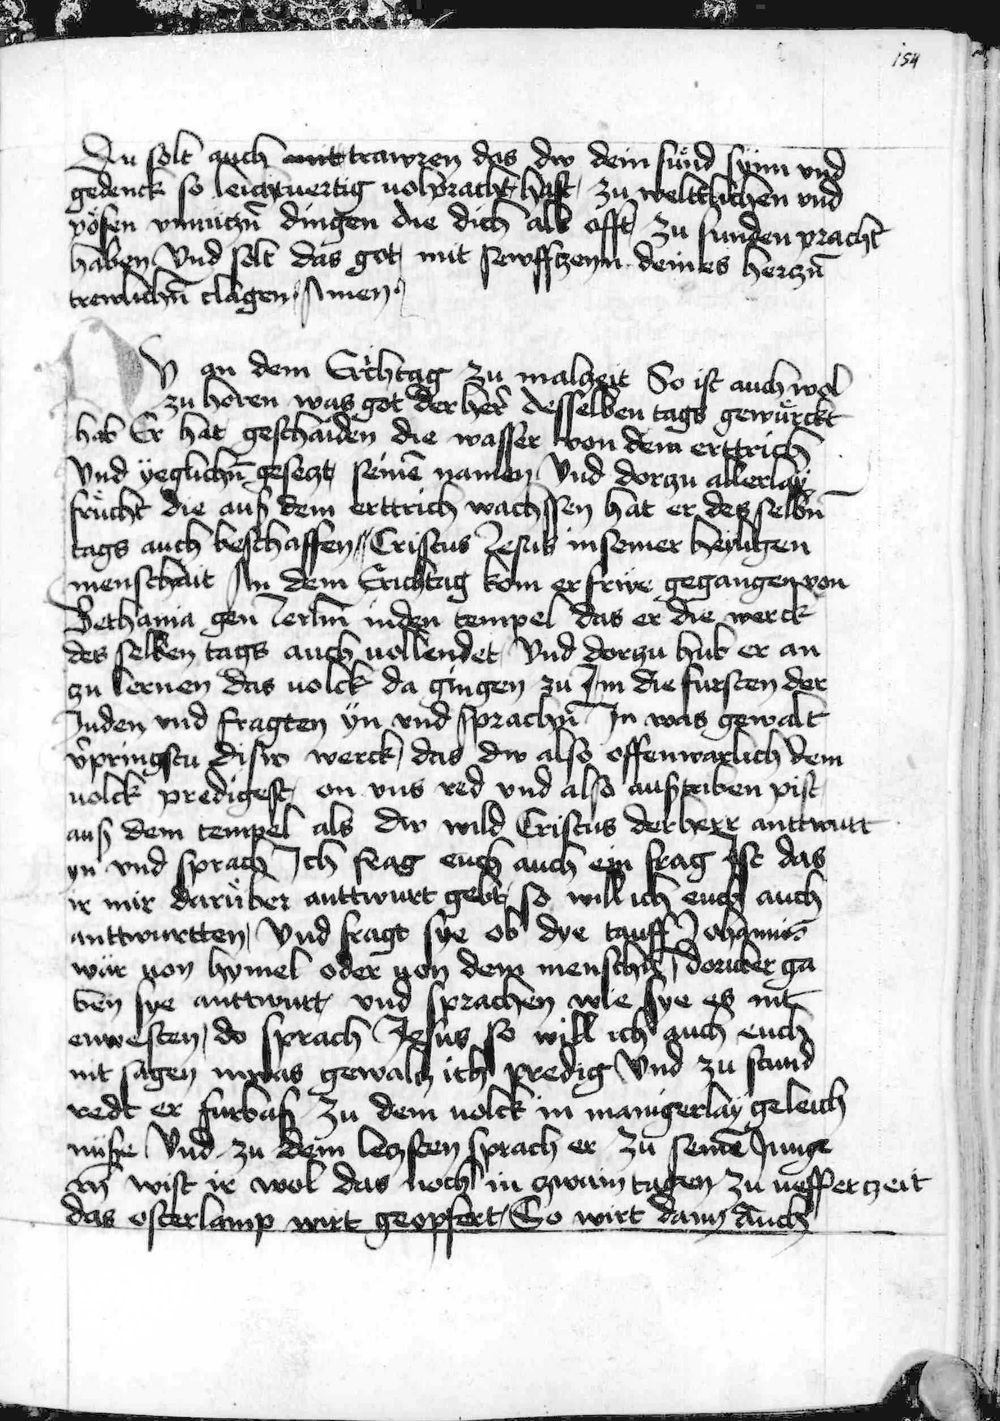 154
Du solt auch mit trawren das dw dein sünd synn vnd
gedenck so leichtuertig uolpracht hast / zu weltlichen vnd
pösen vnnutzn̄ dingen die dich als offt zu sunden pracht
haben Vnd solt das got mit sewfftzenn deines hertzn̄
trewlichn̄ clagen / Amen
V an dem Erichtag zu malzeit So ist auch wol
zu horen was got der her desselben tags gewürckt
hab Er hat geschaiden die wasser von dem erttrich
Vnd yeglichn̄ gesetzt seinē namen Vnd dorzu allerlay
frücht die auß dem erttrich wachssen hat er desselbn̄
tags auch beschaffen / Cristus Jesus in seiner heyligen
menschait An dem Erichtag kom er frwe gegangen von
Bethania gen Jerlm̄ in den tempel das er die werck
des selben tags auch uollendet / Vnd dorzu hub er an
zu lernen das uolck da gingen zu Im die fursten der
Juden vnd fragten yn vnd sprachn̄ In was gewalt
v̈pringstu disw werck / das dw also offenwarlich dem
uolck predigest / on vns red vnd also austriben pist
auß dem tempel als dw wild Cristus der herr anttwurt
yn vnd sprach Ich frag euch auch ein frag Ist das
ir mir darüber anttwurt gebt / so will ich euch auch
anttwurtten / Vnd fragt sye ob dye tauff Johannis
wär uon hymel oder uon dem menschn̄ / doruber ga
ben sye anttwurt / vnd sprachen wie sye es nit
enwesten / do sprach Jesus so will ich auch euch
nit sagen in was gewalt ich predig Vnd zu stund
redt er furbaß zu dem uolck in manigerlay geleich
nuße Vnd zu dem letzsten sprach er zu seinē Junge
rn̄ wist ir wol das noch in zwain tagen zu uefferczeit
das osterlamp wirt geopfert / So wirt dann auch